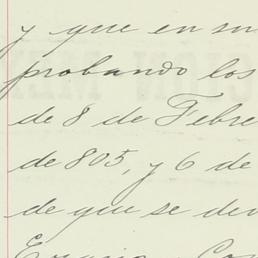 y que en su
probando los
de 8 de Febre
de 805, y 6 de
de que se dev